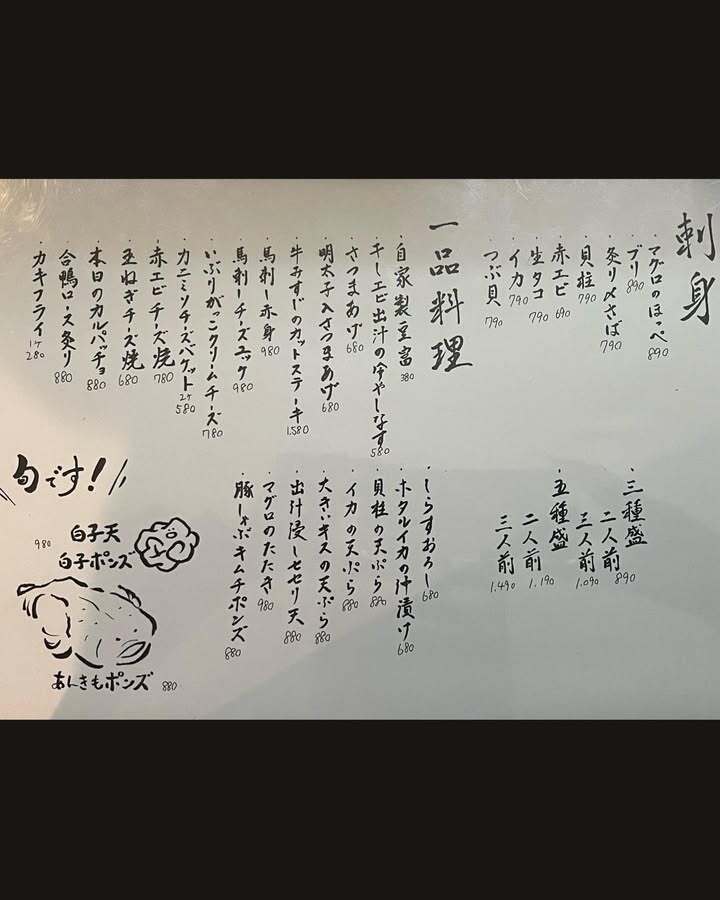 刺身
・マグロのほっぺ 890
・ブリ 890
・炙り〆さば 790
・貝柱 790
・赤エビ 690
・生タコ 790
・イカ 790
・つぶ貝 790
・三種盛
二人前 890
三人前 1.090
・五種盛
二人前 1.190
三人前 1.490
一品料理
・自家製豆富 380
・干しエビ出汁の冷やしなす 580
・さつまあげ 680
・明太子入さつまあげ 680
・牛みすじのカットステーキ 1.580
・馬刺し赤身 980
・馬刺しチーズユッケ 980
・いぶりがっこクリームチーズ 780
・カニミソチーズバケット 2ケ 580
・赤エビチーズ焼 780
・玉ねぎチーズ焼 680
・本日のカルパッチョ 880
・合鴨ロース炙り 880
・カキフライ 1ケ 280
・しらすおろし 680
・ホタルイカの汁漬け 680
・貝柱の天ぷら 880
・イカの天ぷら 880
・大きいキスの天ぷら 880
・出汁浸しセセリ天 880
・マグロのたたき 980
・豚しゃぶキムチポンズ 880
旬です!
白子天
白子ポンズ 980
あんきもポンズ 880